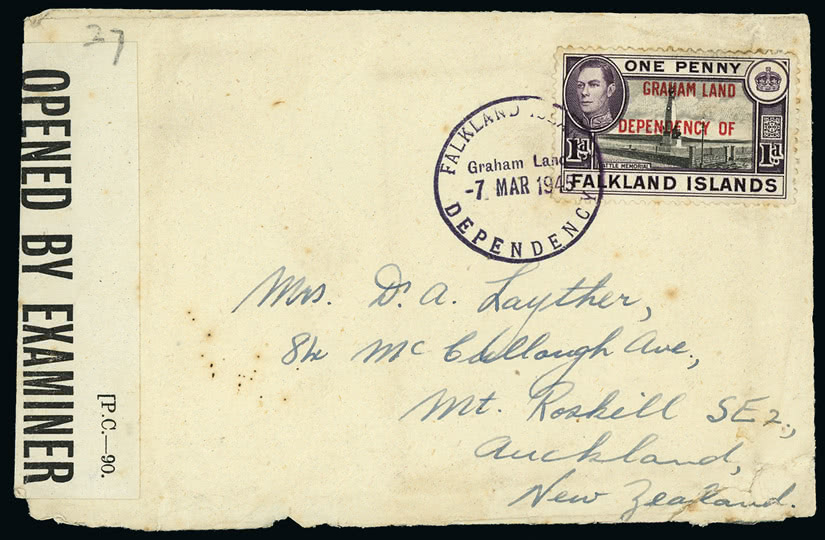 27
OPENED BY EXAMINER
[P.C.—90.
FALKLAND ISLA
Graham Land
-7 MAR 1945
DEPENDENCY
ONE PENNY
GRAHAM LAND
DEPENDENCY OF
1d 1d
BATTLE MEMORIAL
FALKLAND ISLANDS
Mrs. D. A. Layther,
84 McCullough Ave.,
Mt. Roskill SE2.,
Auckland,
New Zealand.